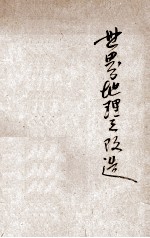 世界地理之改造